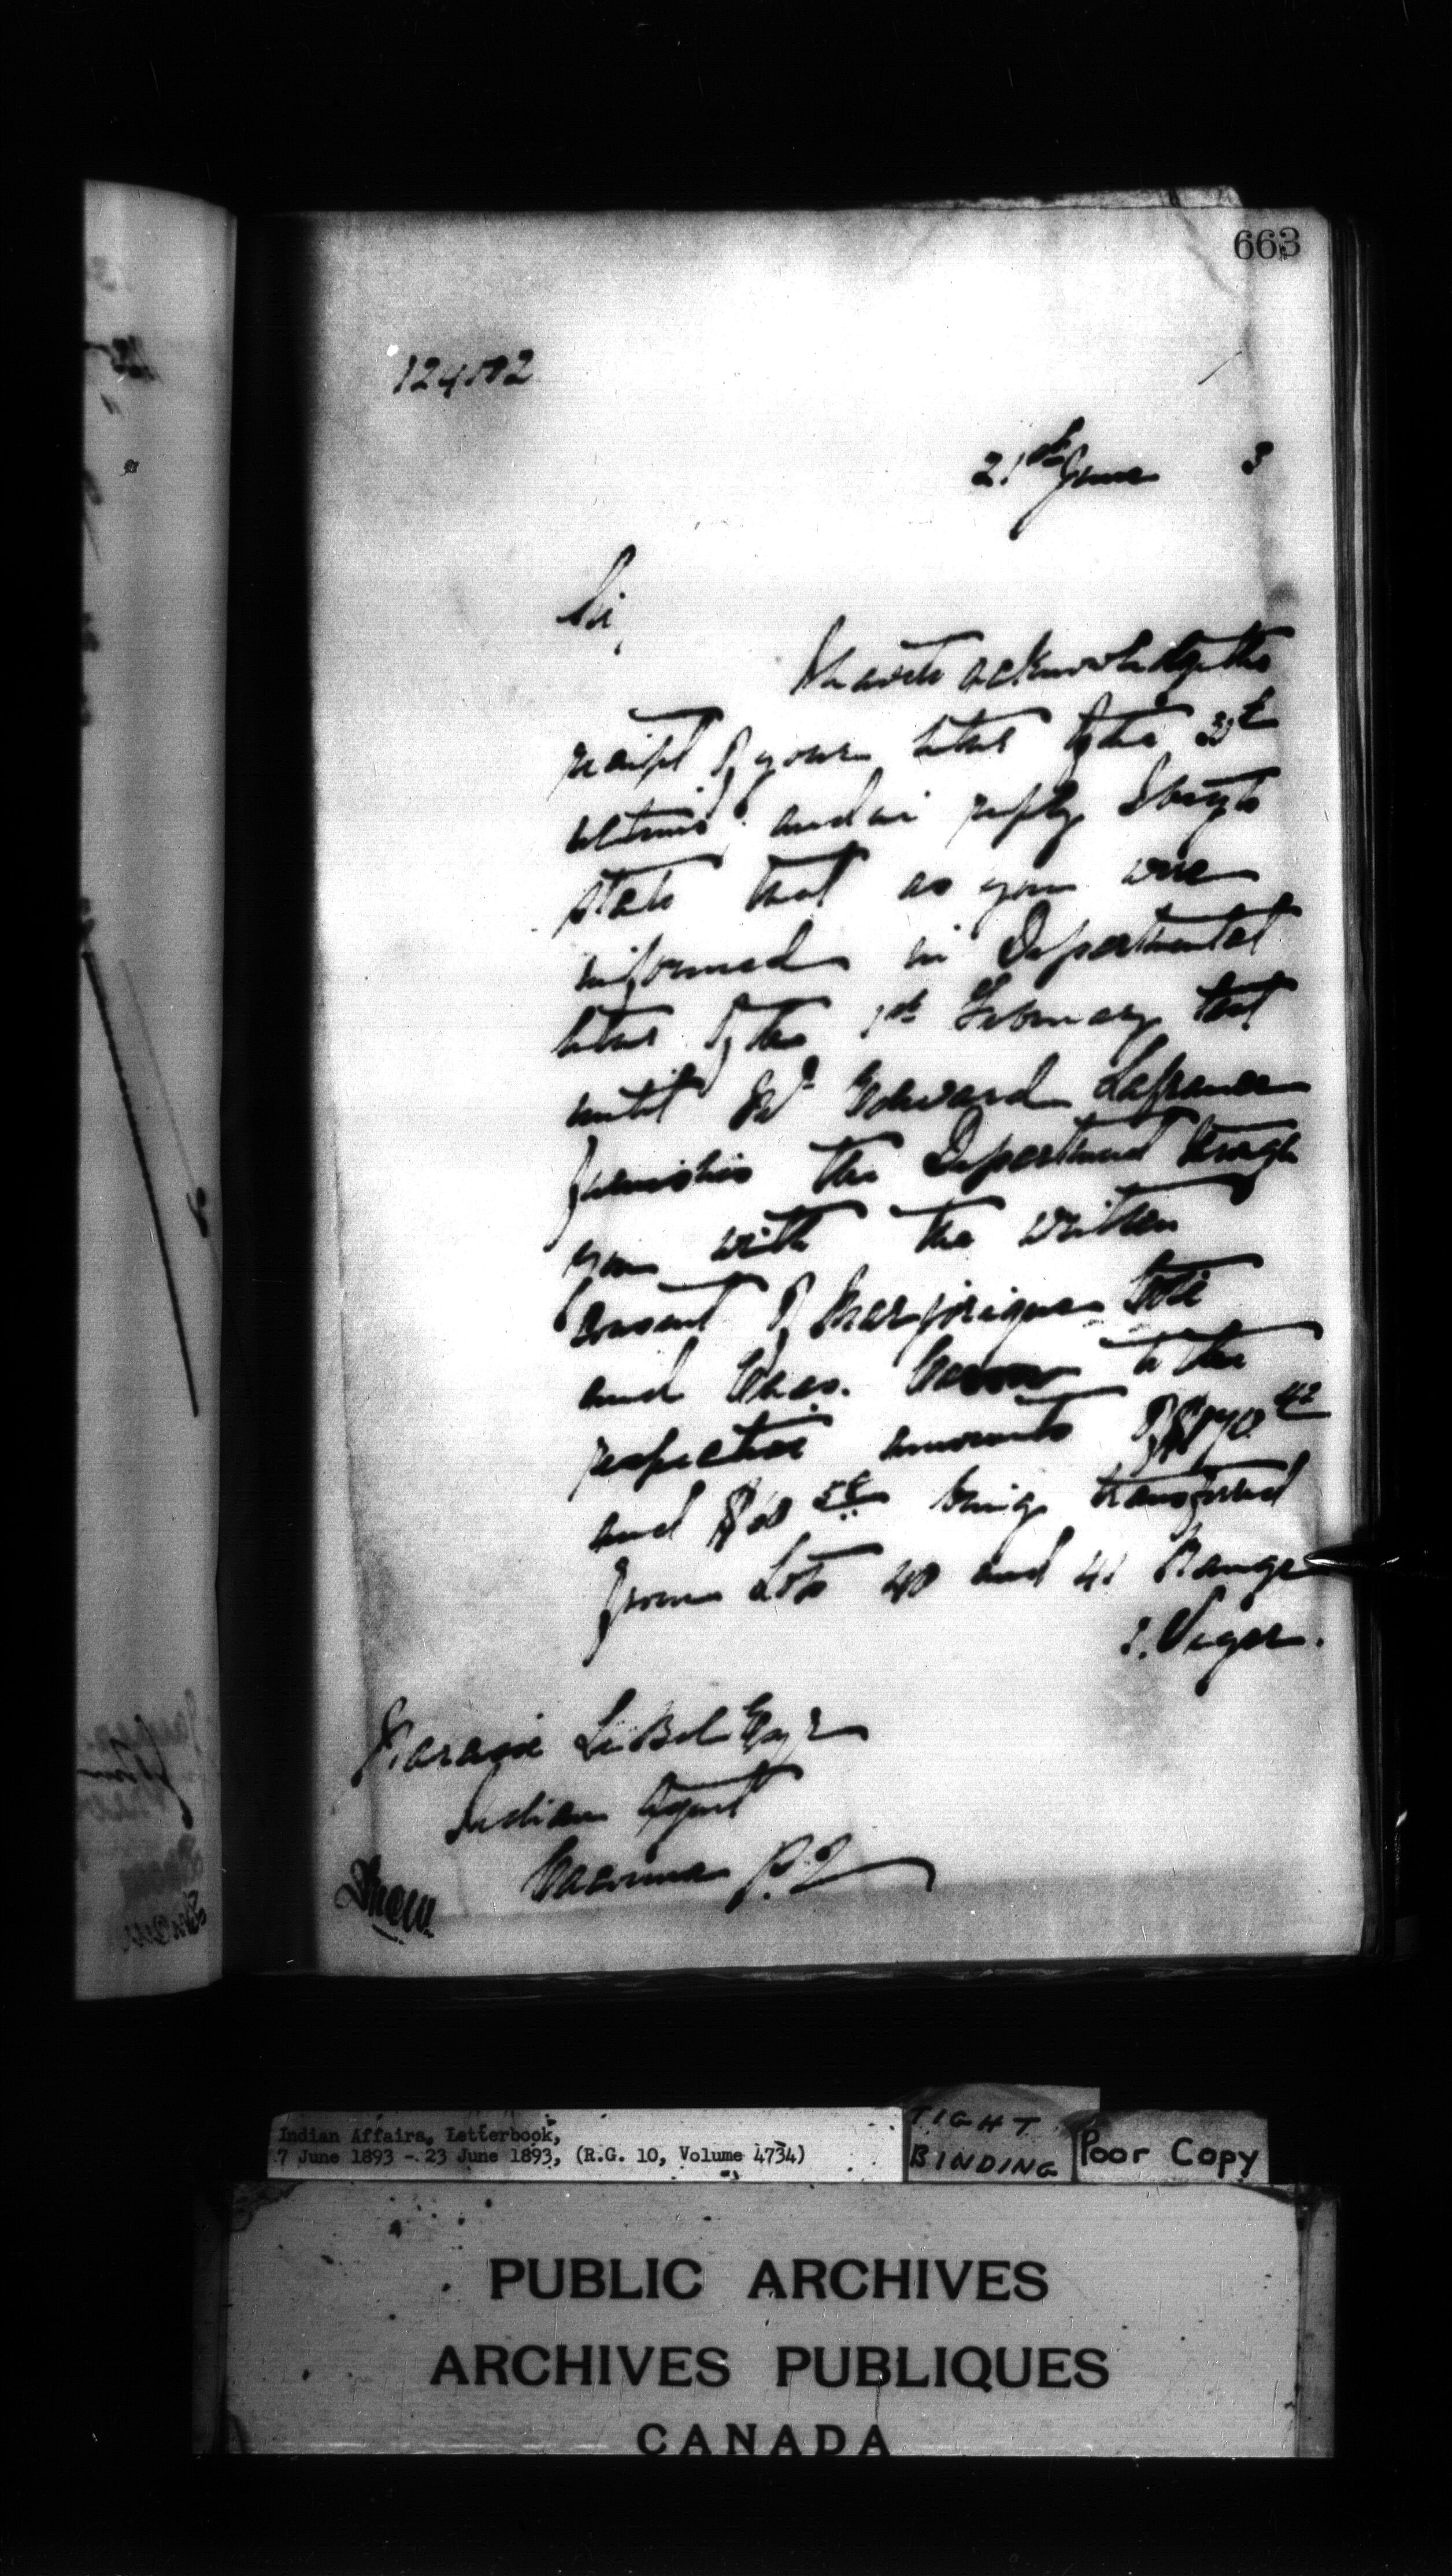 663
21st June 3
Sir,
I have to acknowledge the
receipt of your letter of the
ultimo and in reply I beg to
state that as you were
informed in Departmental
letter of the 1st February that
until Edward Lafrance
furnishes the Department through
you with the written
consent of
and Chas. to the
respective amounts of
and being transferred
from Lots 40 and 41 Range
1. Viger.
Narcisse LeBel Esqr
Indian Agent
Cacouna P.Q
Indian Affairs, Letterbook,
7 June 1893 - 23 June 1893, (R.G. 10, Volume 4734)
TIGHT
BINDING
Poor Copy
PUBLIC ARCHIVES
ARCHIVES PUBLIQUES
CANADA